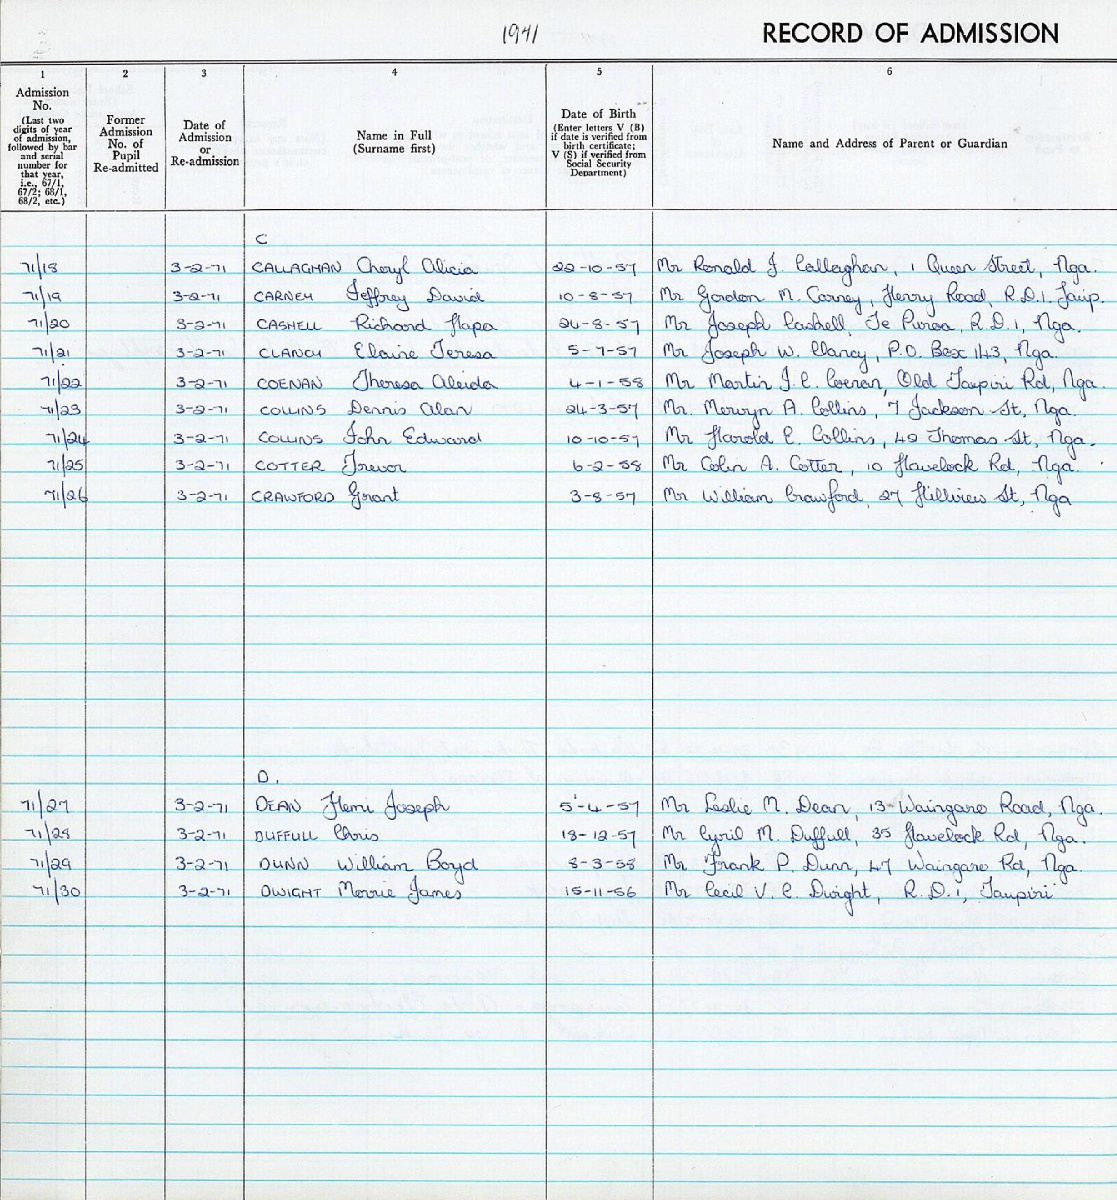 1971 RECORD OF ADMISSION
1 2 3 4 5 6
Admission No. (Last two digits of year of admission, followed by bar and serial number for that year, i.e., 67/1, 67/2; 68/1, 68/2, etc.)
Former Admission No. of Pupil Re-admitted
Date of Admission or Re-admission
Name in Full (Surname first)
Date of Birth (Enter letters V (B) if date is verified from birth certificate; V (S) if verified from Social Security Department)
Name and Address of Parent or Guardian
C
71/18 3-2-71 CALLAGHAN Cheryl Alicia 22-10-57 Mr Ronald J. Callaghan, 1 Queen Street, Nga.
71/19 3-2-71 CARNEY Jeffrey David 10-8-57 Mr Gordon M. Carney, Henry Road, R.D.1. Taup.
71/20 3-2-71 CASHELL Richard Hapa 24-8-57 Mr Joseph Cashell, Te Puroa, R.D.1, Nga.
71/21 3-2-71 CLANCY Elaine Teresa 5-7-57 Mr Joseph W. Clancy, P.O. Box 143, Nga.
71/22 3-2-71 COENAN Theresa Aleida 4-1-58 Mr Martin J.C. Coenan, Old Taupiri Rd, Nga.
71/23 3-2-71 COLLINS Dennis Alan 24-3-57 Mr. Mervyn A. Collins, 7 Jackson St, Nga.
71/24 3-2-71 COLLINS John Edward 10-10-57 Mr Harold E. Collins, 42 Thomas St, Nga.
71/25 3-2-71 COTTER Trevor 6-2-58 Mr Colin A. Cotter, 10 Havelock Rd, Nga.
71/26 3-2-71 CRAWFORD Grant 3-8-57 Mr William Crawford, 27 Hillview St, Nga
D.
71/27 3-2-71 DEAN Hemi Joseph 5-4-57 Mr Leslie M. Dean, 13 Waingaro Road, Nga.
71/28 3-2-71 DUFFULL Chris 18-12-57 Mr Cyril M. Duffull, 35 Havelock Rd, Nga.
71/29 3-2-71 DUNN William Boyd 8-3-58 Mr Frank P. Dunn, 47 Waingaro Rd, Nga.
71/30 3-2-71 DWIGHT Morrie James 15-11-56 Mr Cecil V. C. Dwight, R.D.1, Taupiri